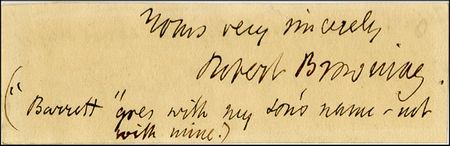 Yours very sincerely
Robert Browning.
("Barrett" goes with my son's name – not
with mine.)